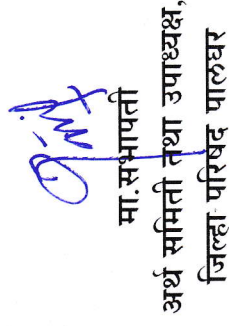 मा.सभापती
अर्थ समिती तथा उपाध्यक्ष,
जिल्हा परिषद पालघर